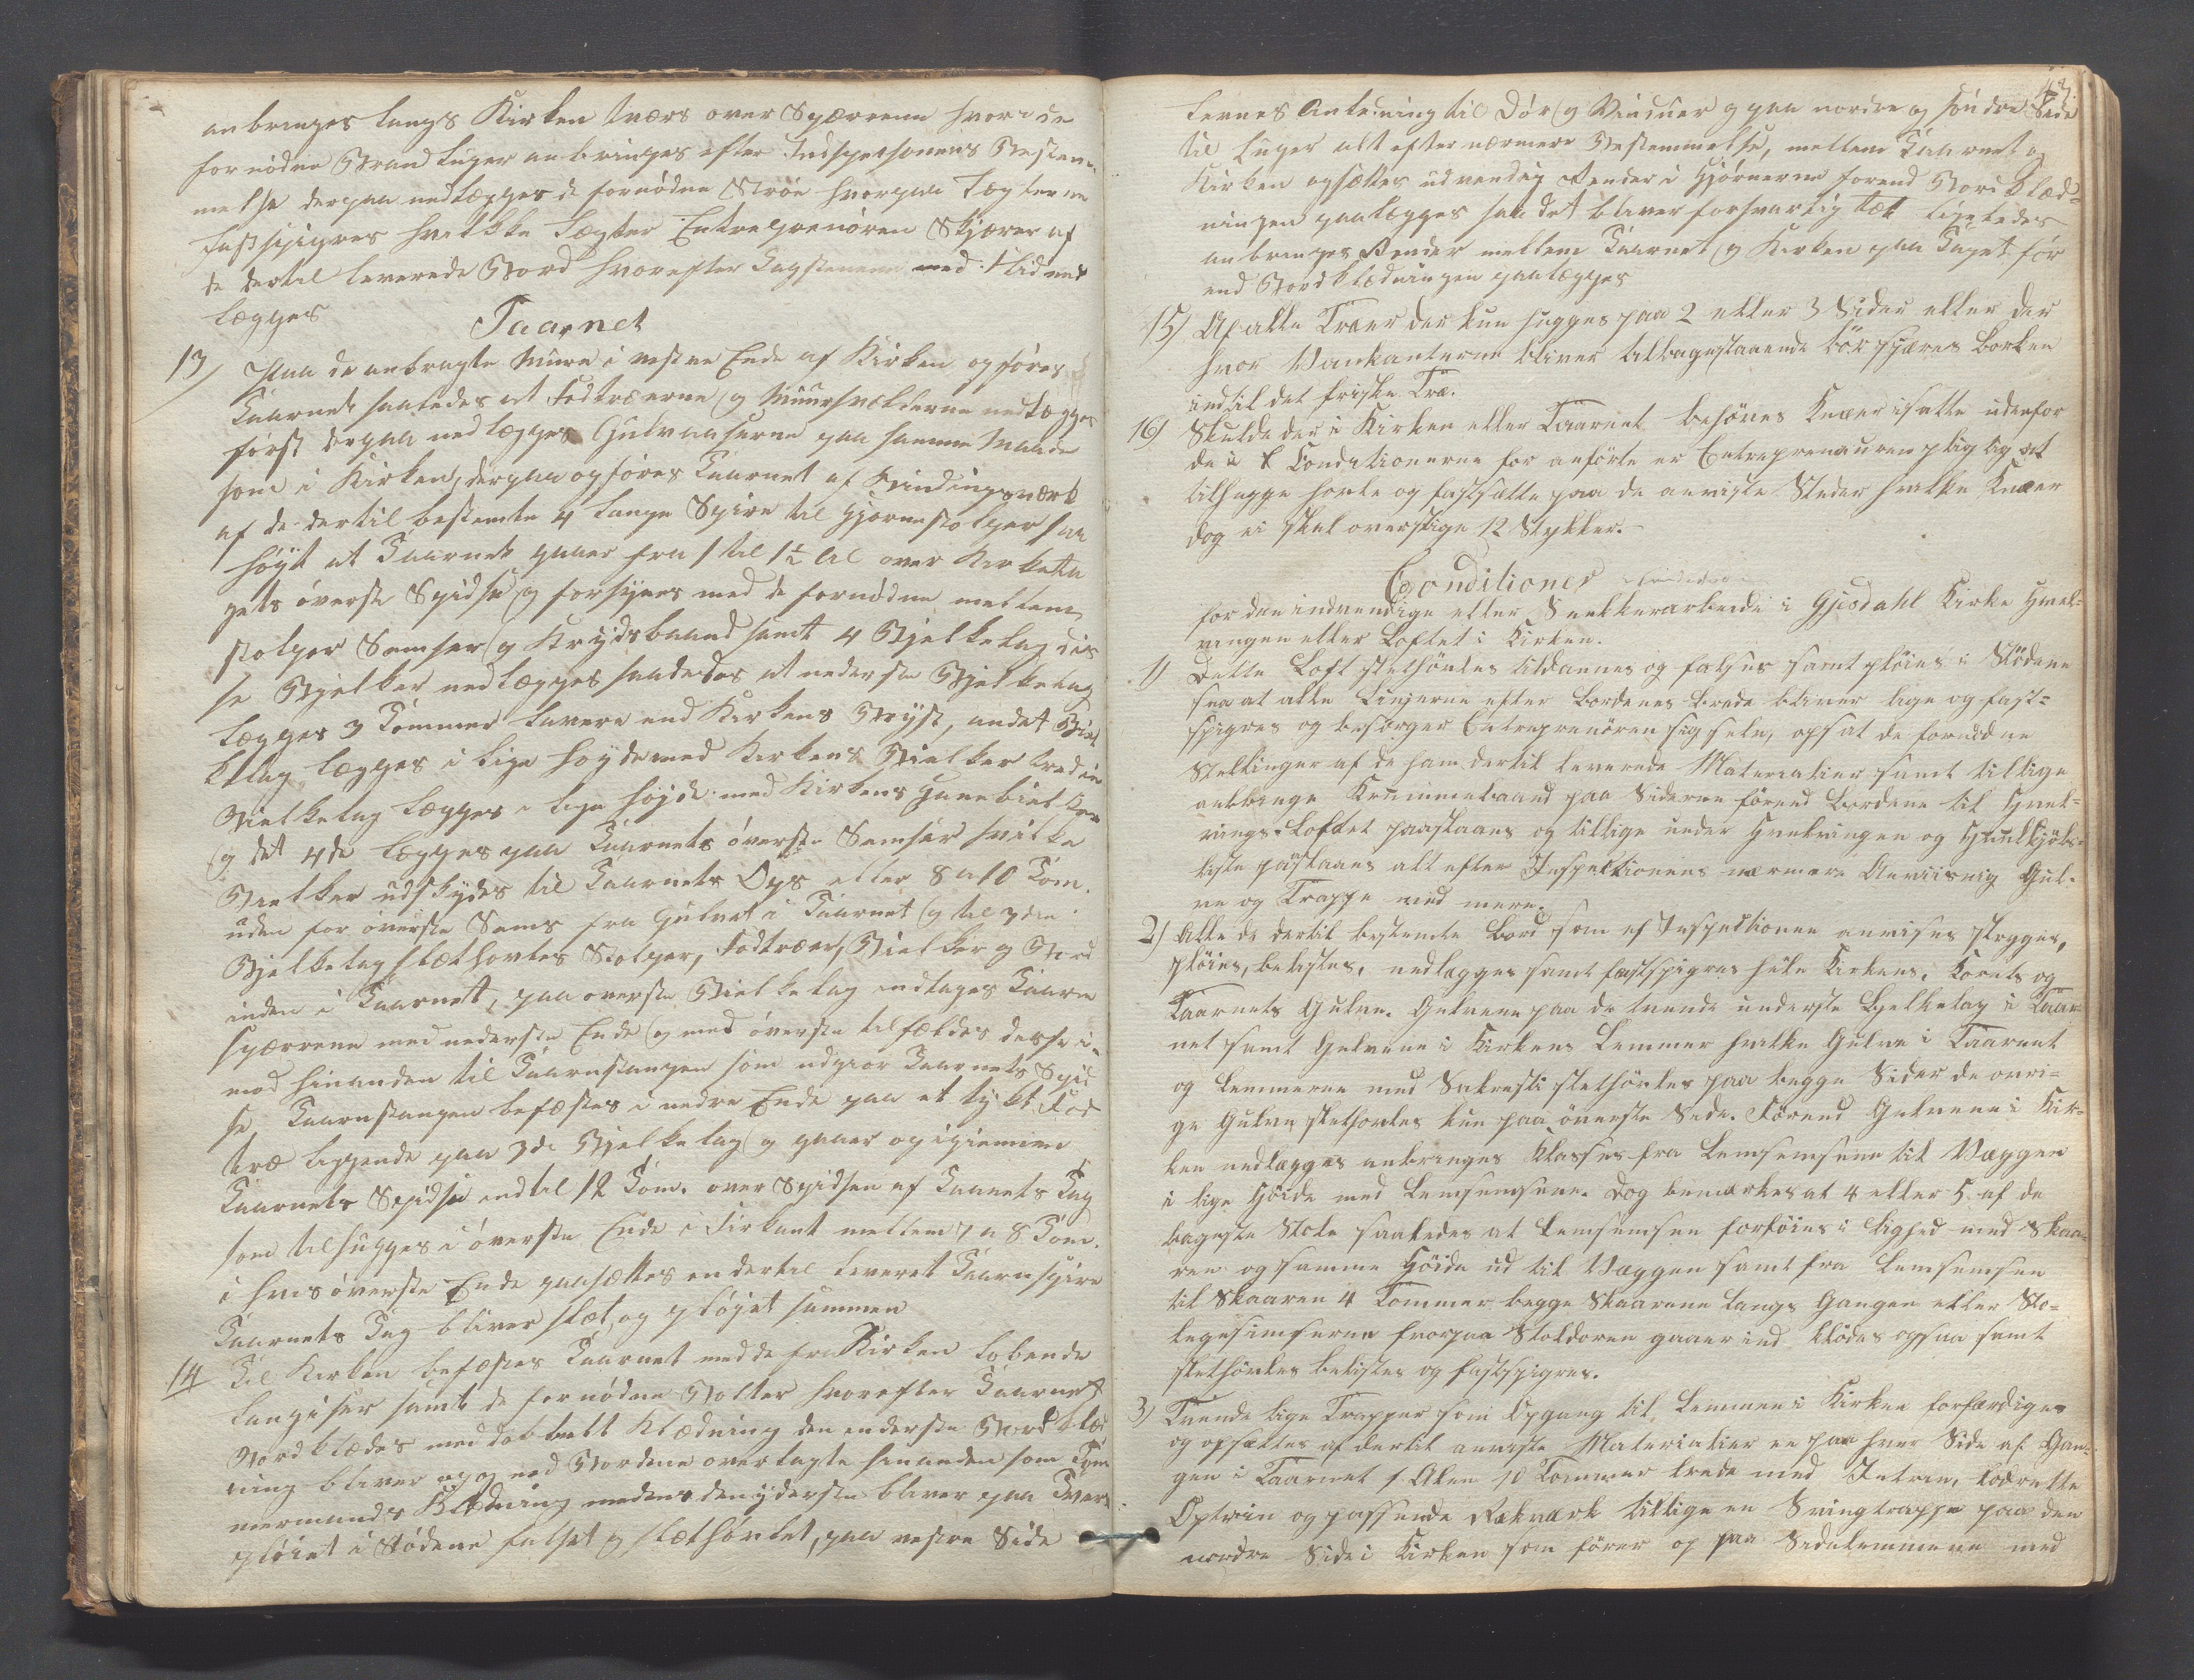 anbringes langs Kirken tværs over Spærrene hvor de
fornødne Brandluger anbringes efter Indspetionens Bestem
melse derpaa nedlægges de fornødne Strøe hvorpaa Lægterne
fastspigres hvilkke Lægter Entreprenøren Skjærer af
de dertil leverede Bord hvorefter Tagstenene med Flid ned
lægges
Taarnet
13/ Paa de anbragte Mure i vestre Ende af Kirken opføres
Taarnet saaledes at Fodtræerne og Muursvellerne nedlægges
først derpaa nedlægges Gulvaaserne paa samme Maade
som i Kirken, derpaa opføres Taarnet af Bindingsværk
af de dertil bestemte 4 lange Spire til Hjørnestolper saa
høyt at Taarnet gaaer fra 1 til 1½ Al over Kirketa
gets øverste Spidse og forsynes med de fornødne mellem
stolper Samser og Krydsbaand samt 4 Bjelkelag dis
se Bjelker nedlægges saaledes at nederste Bjelkelag
lægges 3 Tommer lavere end Kirkens Bryst, andet Biel
kelag lægges i lige høyde med Kirkens Bielker tredie
Bielkelag lægges i lige højde med Kirkens Hanebielker
og det 4de lægges paa Taarnets øverste Samser hvilke
Bielker udskydes til Taarnets Ops eller 8 a 10 Tom.
uden for øverste Sams fra Gulvet i Taarnet og til 3die
Bjelkelag slæthøvles Stolper, Fodtræer, Bielker og Bord
inden i Taarnet, paa øverste Bielkelag indtages Taarn
spærrene med nederste Ende og med øverste tilfældes disse i
mod hinanden til Taarnstangen som udgiør Taarnets Spid
se Taarnstangen befæstes i nedre Ende paa et tykt Fod
træ liggende paa 3de Bjelkelag og gaaer op igiennem
Taarnets Spidse indtil 12 Tom. over Spidsen af Taarnets Tag
som tilhugges i øverste Ende i Firkant mellem 7 a 8 Tom.
i hvis øverste Ende paasættes en dertil leveret Taarnspire
Taarnets Tag bliver slæt og pløjet sammen
14 Til Kirken befæstes Taarnet med de fra Kirken løbende
Langiser samt de fornødne Bolter hvorefter Taarnet
Bordklædes med dobbelt Klædning den inderste Bordklæd
ning bliver op og ned Bordene overlagte hinanden som Tøm
mermands Klædning medens den yderste bliver paa Tvers
pløiet i Stødene falset og slæthøvlet, paa vestre Side
levnes Anledning til Dør og Vinduer og paa nordre og søndre Side
til Luger alt efter nærmere Bestemmelse, mellem Taarnet og
Kirken opsættes udvendig Render i Hjørnerne forend Bordklæd-
ningen paalægges saa det bliver forsvarlig tæt ligeledes
anbringes Render mellem Taarnet og Kirken paa Taget før
end Bordklædningen paalægges
15) Af alle Træer der kun hugges paa 2 eller 3 Sider eller der
hvor Vankanterne bliver tilbagestaaende bør skjæres Borken
indtil det friske Træ.
16) Skulde der i Kirken eller Taarnet behøves Knæer isatte udenfor
de i Conditionerne for anførte er Entreprenøren pligtig at
tilhugge høvle og fastsætte paa de anviste Steder hvilke Knæer
dog ei skal overstige 12 Stykker.
Conditioner
for den indvendige eller Snekkerarbeide i Gjesdahl Kirke Hvel-
vingen eller Loftet i Kirken.
1) Dette Loft slethøvles tildannes og falses samt pløies i Stødene
saa at alle Linjerne efter Bordenes brede bliver lige og fast-
spigres og besørger Entreprenøren sig selv, opsat de fornødne
Stellinger af de ham dertil leverede Materialier samt tillige
anbringe Krummebaand paa Siderne førend Bordene til Hvel-
vings-Loftet paaslaaes og tillige under Hvelvingen og
liste paaslaaes alt efter Inspektionens nærmere Anviisnig Gul-
ve og Trappe med mere.
2) Alle de dertil bestemte Bord som af Inspectionen anvises stryges,
pløies, belistes, nedlægges samt fastspigres hele Kirkens, Korets og
Taarnets Gulve. Gulvene paa de tvende underste Bjelkelag i Taar-
net samt Gulvene i Kirkens Lemmer hvilke Gulve i Taarnet
og Lemmerne med Sakresti slethøvles paa begge Sider de øvri-
ge Gulve slethøvles kun paa øverste Side. Førend Gulvene i Kir-
ken nedlægges anbringes Klosser fra Lemsemsene til Væggen
i lige Høide med Lemsemsene. Dog bemærkes at 4 eller 5 af de
bageste Stole saaledes at Lemsemsen forhøies i lighed med Skaa-
ren og samme Høide ud til Væggen samt fra Lemsemsen
til Skaaren 4 Tommer begge Skaarene langs Gangen eller Sto-
legesimserne hvorpaa Stoldøren gaaer ind klædes ogsaa samt
slethøvles belistes og fastspigres.
3) Tvende lige Trapper som Opgang til Lemmen i Kirken forfærdiges
og opsættes af dertil anviste Materialier en paa hver Side af Gan-
gen i Taarnet 1 Alen 10 Tommer brede med Intrin, lodrette
Optrin og passende Rekværk tillige en Svingtrappe paa den
nordre Side i Kirken som fører op paa Sidelemmene med